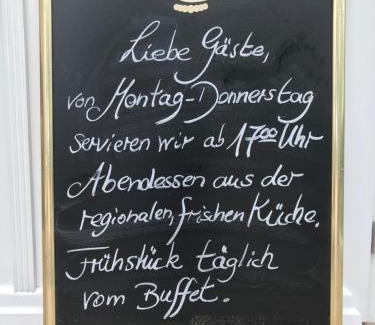 Liebe Gäste,
von Montag-Donnerstag
servieren wir ab 17⁰⁰ Uhr
Abendessen aus der
regionalen, frishen Küche.
Frühstück täglich
vom Buffet.